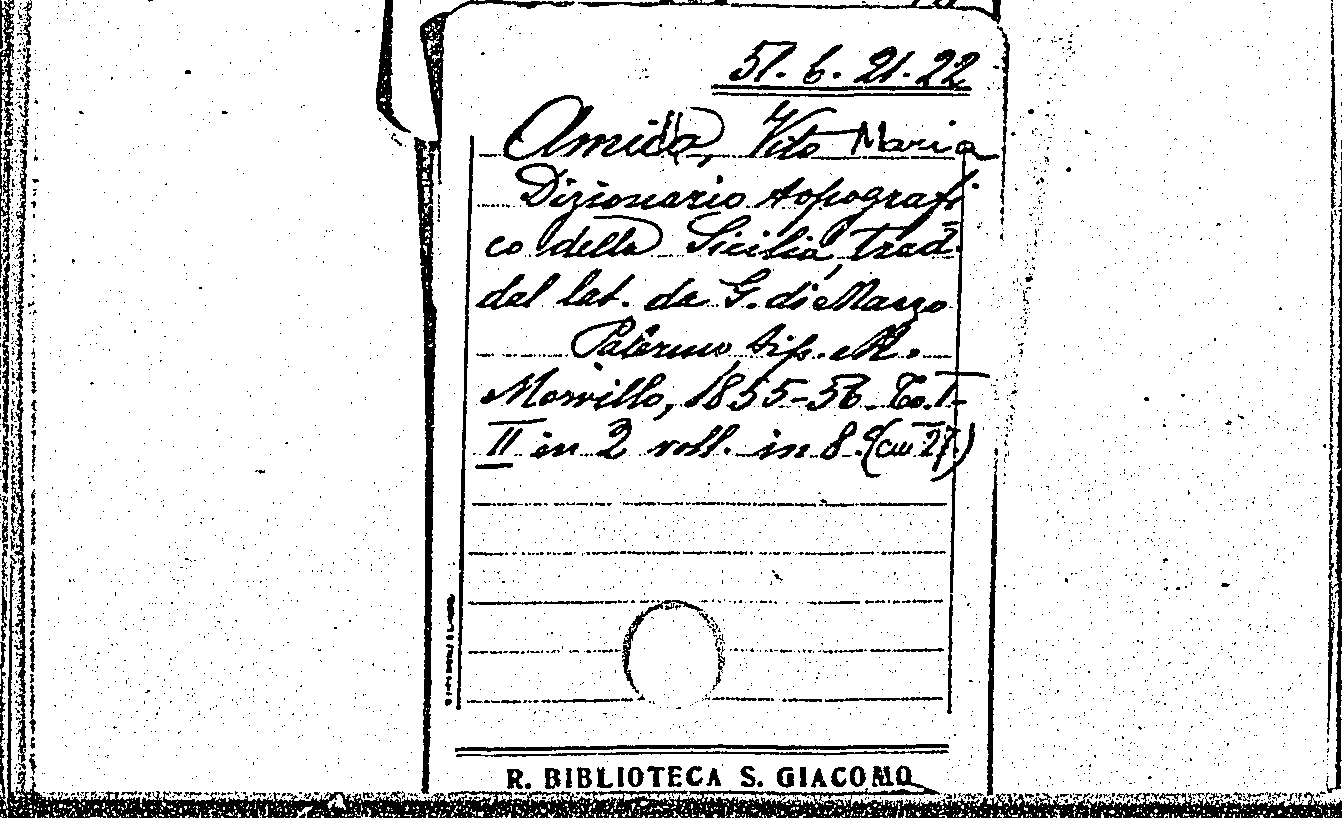 57. 6. 21. 22
Amico, Vito Maria
Dizionario topografi
co della Sicilia, trad.
dal lat. da G. di Marzo
Palermo, tip. P.
Morvillo, 1855-56. To. I-
II in 2 voll. in 8.° (cm 27.)
R. BIBLIOTECA S. GIACOMO